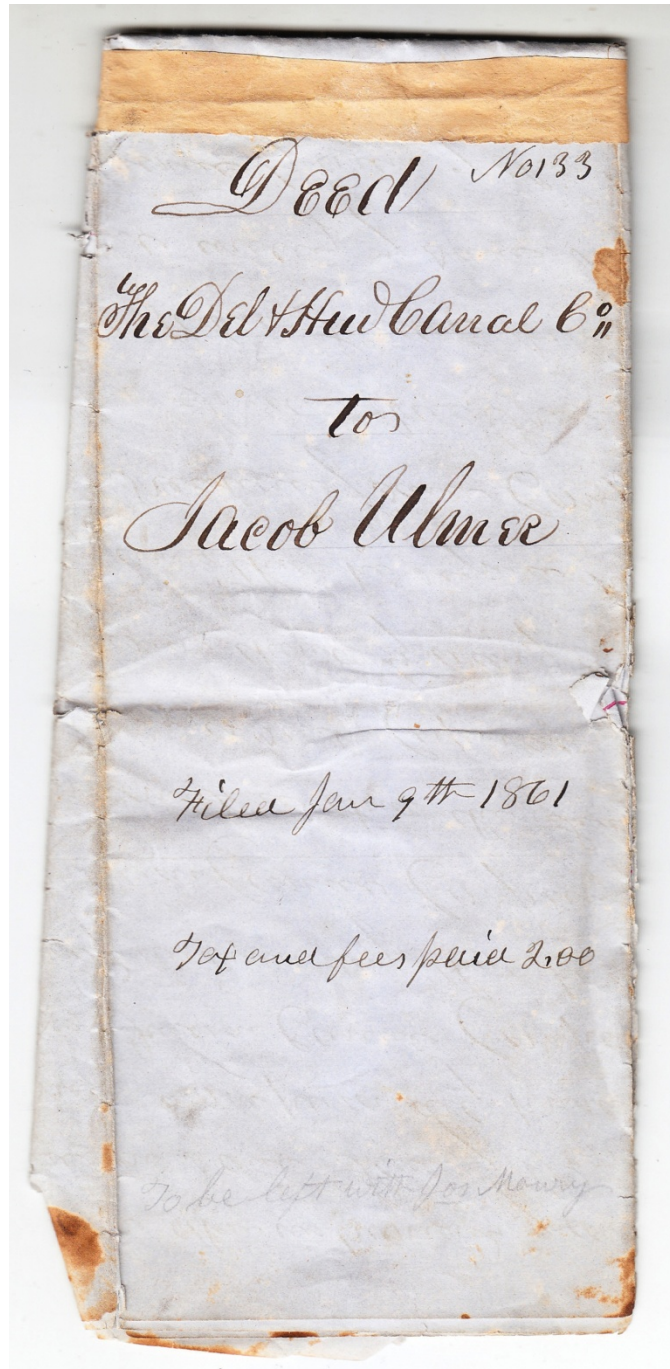 Deed No 133
The Del & Hud Canal Co
to
Jacob Ulmer
Filed Jan 9th 1861
Tax and fees paid 2.00
To be left with Jos Mowry